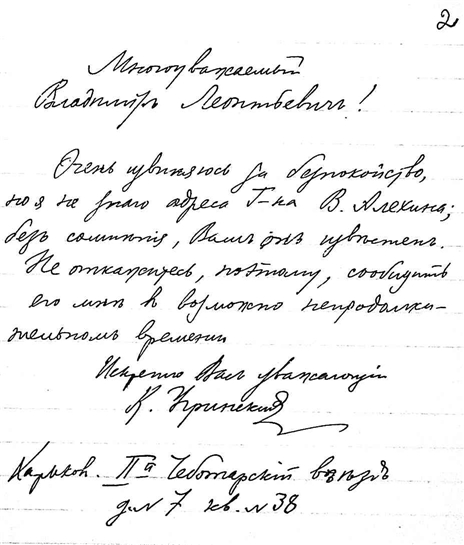 2
Многоуважаемый
Владимiръ Леонтьевичъ!
Очень извиняюсь за безпокойство,
но я не знаю адреса Г-на В. Алехина;
безъ сомнѣнiя, Вамъ онъ извѣстенъ.
Не откажитесь, поэтому, сообщить
его мнѣ въ возможно непродолжи-
тельномъ времени
Искренно Васъ уважающiй
К.
Харьковъ. IIй Чеботарскiй въѣздъ
д. № 7 кв. № 38